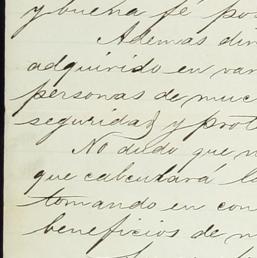 y buena fé pos
Ademas din
adquirido en var
personas de muc
seguridad y prot
No dudo que n
que calculará l
tomando en con
beneficios de m